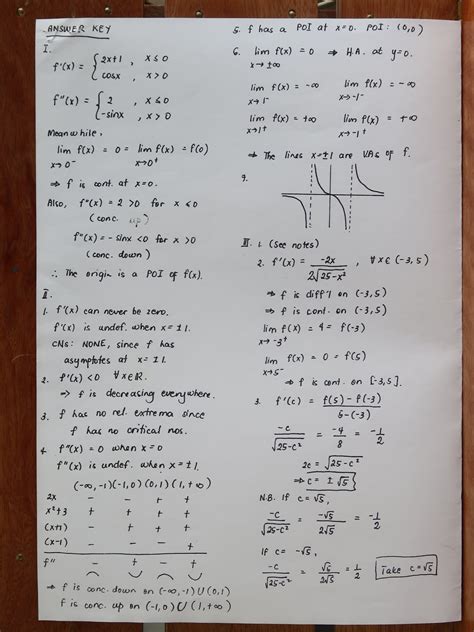 ANSWER KEY
I.
f'(x) = { 2x+1 , x ≤ 0
cosx , x > 0
f''(x) = { 2 , x ≤ 0
-sinx , x > 0
Meanwhile,
lim f(x) = 0 = lim f(x) = f(0)
x→0⁻ x→0⁺
⇒ f is cont. at x=0.
Also, f''(x) = 2 >0 for x ≤0
(conc. up)
f''(x) = -sinx <0 for x >0
(conc. down)
∴ The origin is a POI of f(x).
II.
1. f'(x) can never be zero.
f'(x) is undef. when x = ±1.
CNs: NONE, since f has
asymptotes at x = ±1.
2. f'(x) <0 ∀x∈ℝ.
⇒ f is decreasing everywhere.
3. f has no rel. extrema since
f has no critical nos.
4. f''(x) = 0 when x=0
f''(x) is undef. when x=±1.
(-∞,-1)(-1,0)(0,1)(1,+∞)
2x - - + +
x²+3 + + + +
(x+1) - + + +
(x-1) - - - +
f'' - + - +
⇒ f is conc. down on (-∞,-1)∪(0,1)
f is conc. up on (-1,0)∪(1,+∞)
5. f has a POI at x=0. POI: (0,0)
6. lim f(x) = 0 ⇒ H.A. at y=0.
x→±∞
lim f(x) = -∞ lim f(x) = -∞
x→1⁻ x→-1⁻
lim f(x) = +∞ lim f(x) = +∞
x→1⁺ x→-1⁺
⇒ The lines x=±1 are VAs of f.
7.
III. 1. (See notes)
2. f'(x) = -2x / 2√25-x² , ∀x∈(-3,5)
⇒ f is diff'l on (-3,5)
⇒ f is cont. on (-3,5)
lim f(x) = 4 = f(-3)
x→-3⁺
lim f(x) = 0 = f(5)
x→5⁻
⇒ f is cont. on [-3,5].
3. f'(c) = f(5) - f(-3) / 5-(-3)
-c / √25-c² = -4 / 8 = -1/2
2c = √25-c²
⇒ c = ±√5
N.B. If c=√5,
-c / √25-c² = -√5 / 2√5 = -1/2
If c= -√5,
-c / √25-c² = √5 / 2√5 = 1/2 Take c=√5